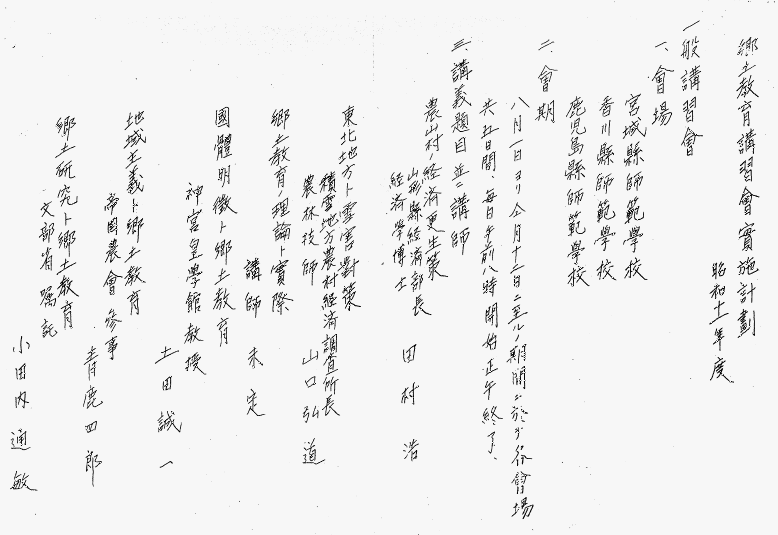 鄉土教育講習會實施計劃
昭和十一年度
一般講習會
一、會場
宮城縣師範學校
香川縣師範學校
鹿児島縣師範學校
二、會期
八月一日ヨリ仝月十二日ニ至ルノ期間ニ於テ各會場
共五日間、毎日午前八時開始正午終了、
三、講義題目並ニ講師
農山村ノ経済更生策
山形縣経済部長
経済學博士
田村 浩
東北地方ト雪害對策
積雪地方農村経済調査所長
農林技師
山口弘道
鄉土教育ノ理論ト實際
講師 未定
國體明徴ト鄉土教育
神宮皇學館教授
土田誠一
地域主義ト鄉土教育
帝国農會參事
青鹿四郎
鄉土研究ト鄉土教育
文部省嘱託
小田内通敏